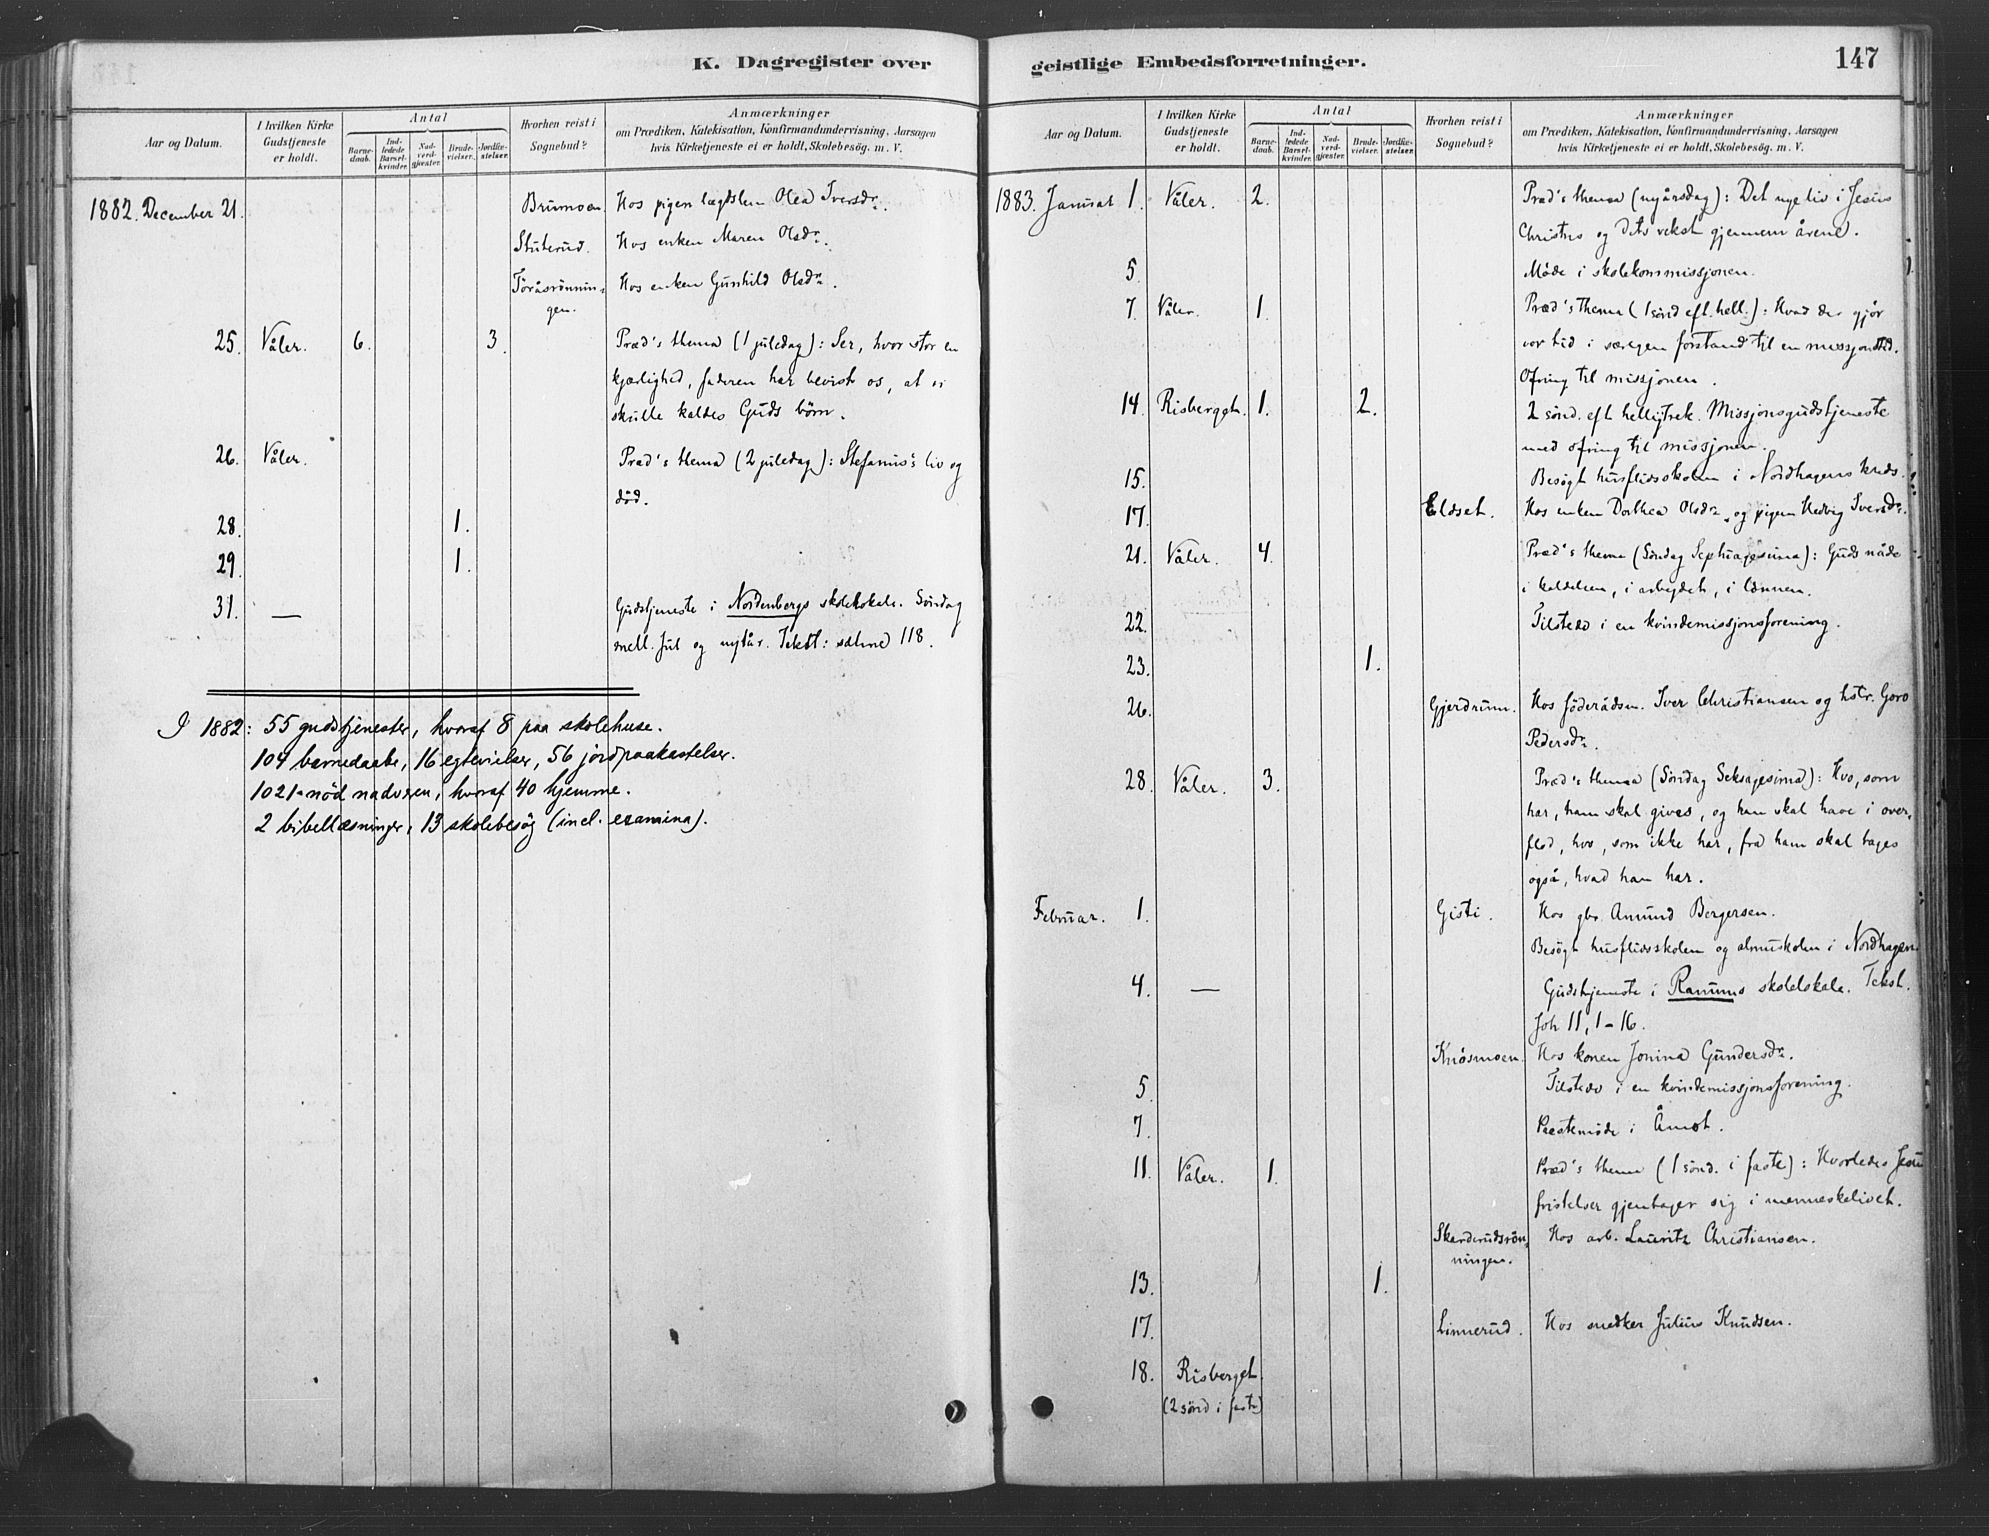 K. Dagregister over
Aar og Datum.
I hvilken Kirke Gudstjeneste er holdt.
Antal
Barnedaab.
Indledede Barselkvinder.
Nadverdgjæster.
Brudevielser.
Jordfæstelser.
Hvorhen reist i Sognebud?
Anmærkninger
om Prædiken, Katekisation, Konfirmandundervisning, Aarsagen
hvis Kirketjeneste ei er holdt, Skolebesøg. m. V.
1882. December 21. Brumoen. Hos pigen lægdslem Olea Iversdr.
Stuterud. Hos enken Maren Olsdr.
Toråsrönnin= Hos enken Gunhild Olsdr.
gen.
25. Våler. 6. 3. Præd's thema (1 juledag): Ser, hvor stor en
kjærlighed, faderen har bevist os, at vi
skulle kaldes Guds børn.
26. Våler. Præd's thema (2 juledag): Stefanus's liv og
död.
28. 1.
29. 1.
31. — Gudstjeneste i Nordenbergs skolelokale. Söndag
mell. jul og nytår. Tekst: salme 118.
I 1882: 55 gudstjenester, hvoraf 8 paa skolehuse.
104 barnedaabe, 16 egtevielser, 56 jordpaakastelser.
1021 nöd nadveren, hvoraf 40 hjemme.
2 bibellæsninger, 13 skolebesög (incl. examina).
geistlige Embedsforretninger.
147
Aar og Datum.
I hvilken Kirke Gudstjeneste er holdt.
Antal
Barnedaab.
Indledede Barselkvinder.
Nadverdgjæster.
Brudevielser.
Jordfæstelser.
Hvorhen reist i Sognebud?
Anmærkninger
om Prædiken, Katekisation, Konfirmandundervisning, Aarsagen
hvis Kirketjeneste ei er holdt, Skolebesøg. m. V.
1883. Januar 1. Våler. 2. Præd's thema (nyårsdag): Det nye liv i Jesus
Christus og dets vekst gjennem årene.
5. Möde i skolekommissjonen.
7. Våler. 1. Præd's thema (1 sönd eft. hell.): Hvad der gjör
vor tid i særegen forstand til en missjonstid.
Ofring til missjonen.
14. Risberget. 1. 2. 2 sönd. eft helligtrek. Missjonsgudstjeneste
med ofring til missjonen.
15. Besögt husflidsskolen i Nordhagens kreds.
17. Eldset. Hos enken Dorthea Olsdr. og pigen Hedvig Iversdr.
21. Våler. 4. Præd's thema (Söndag Septuagesima): Guds nåde
i kaldelsen, i arbejdet, i lønnen.
22. Tilstede i en kvindemissjonsforening.
23. 1.
26. Gjerdrum. Hos föderådsm. Iver Christiansen og hstr. Goro
Pedersdr.
28. Våler. 3. Præd's thema (Söndag Seksagesima): Hvo, som
har, ham skal gives, og han skal have i over=
flod, hvo, som ikke har, fra ham skal tages
også, hvad han har.
Februar. 1. Gisti. Hos gbr. Amund Bergersen.
Besögt husflidsskolen og almuskolen i Nordhagen.
4. — Gudstjeneste i Ranums skolelokale. Tekst.
Joh 11, 1-16.
Knösmoen. Hos konen Jonina Gundersdr.
5. Tilstede i en kvindemissjonsforening.
7. Præstemöde i Åmot.
11. Våler. 1. Præd's thema (1 sönd. i faste): Hvorledes Jesu
fristelser gjentager sig i menneskelivet.
Skarderudsrön= Hos arb. Lauritz Christiansen.
ningen.
13. 1.
17. Linnerud. Hos snedker Julius Knudsen.
18. Risberget.
(2 sönd i faste)